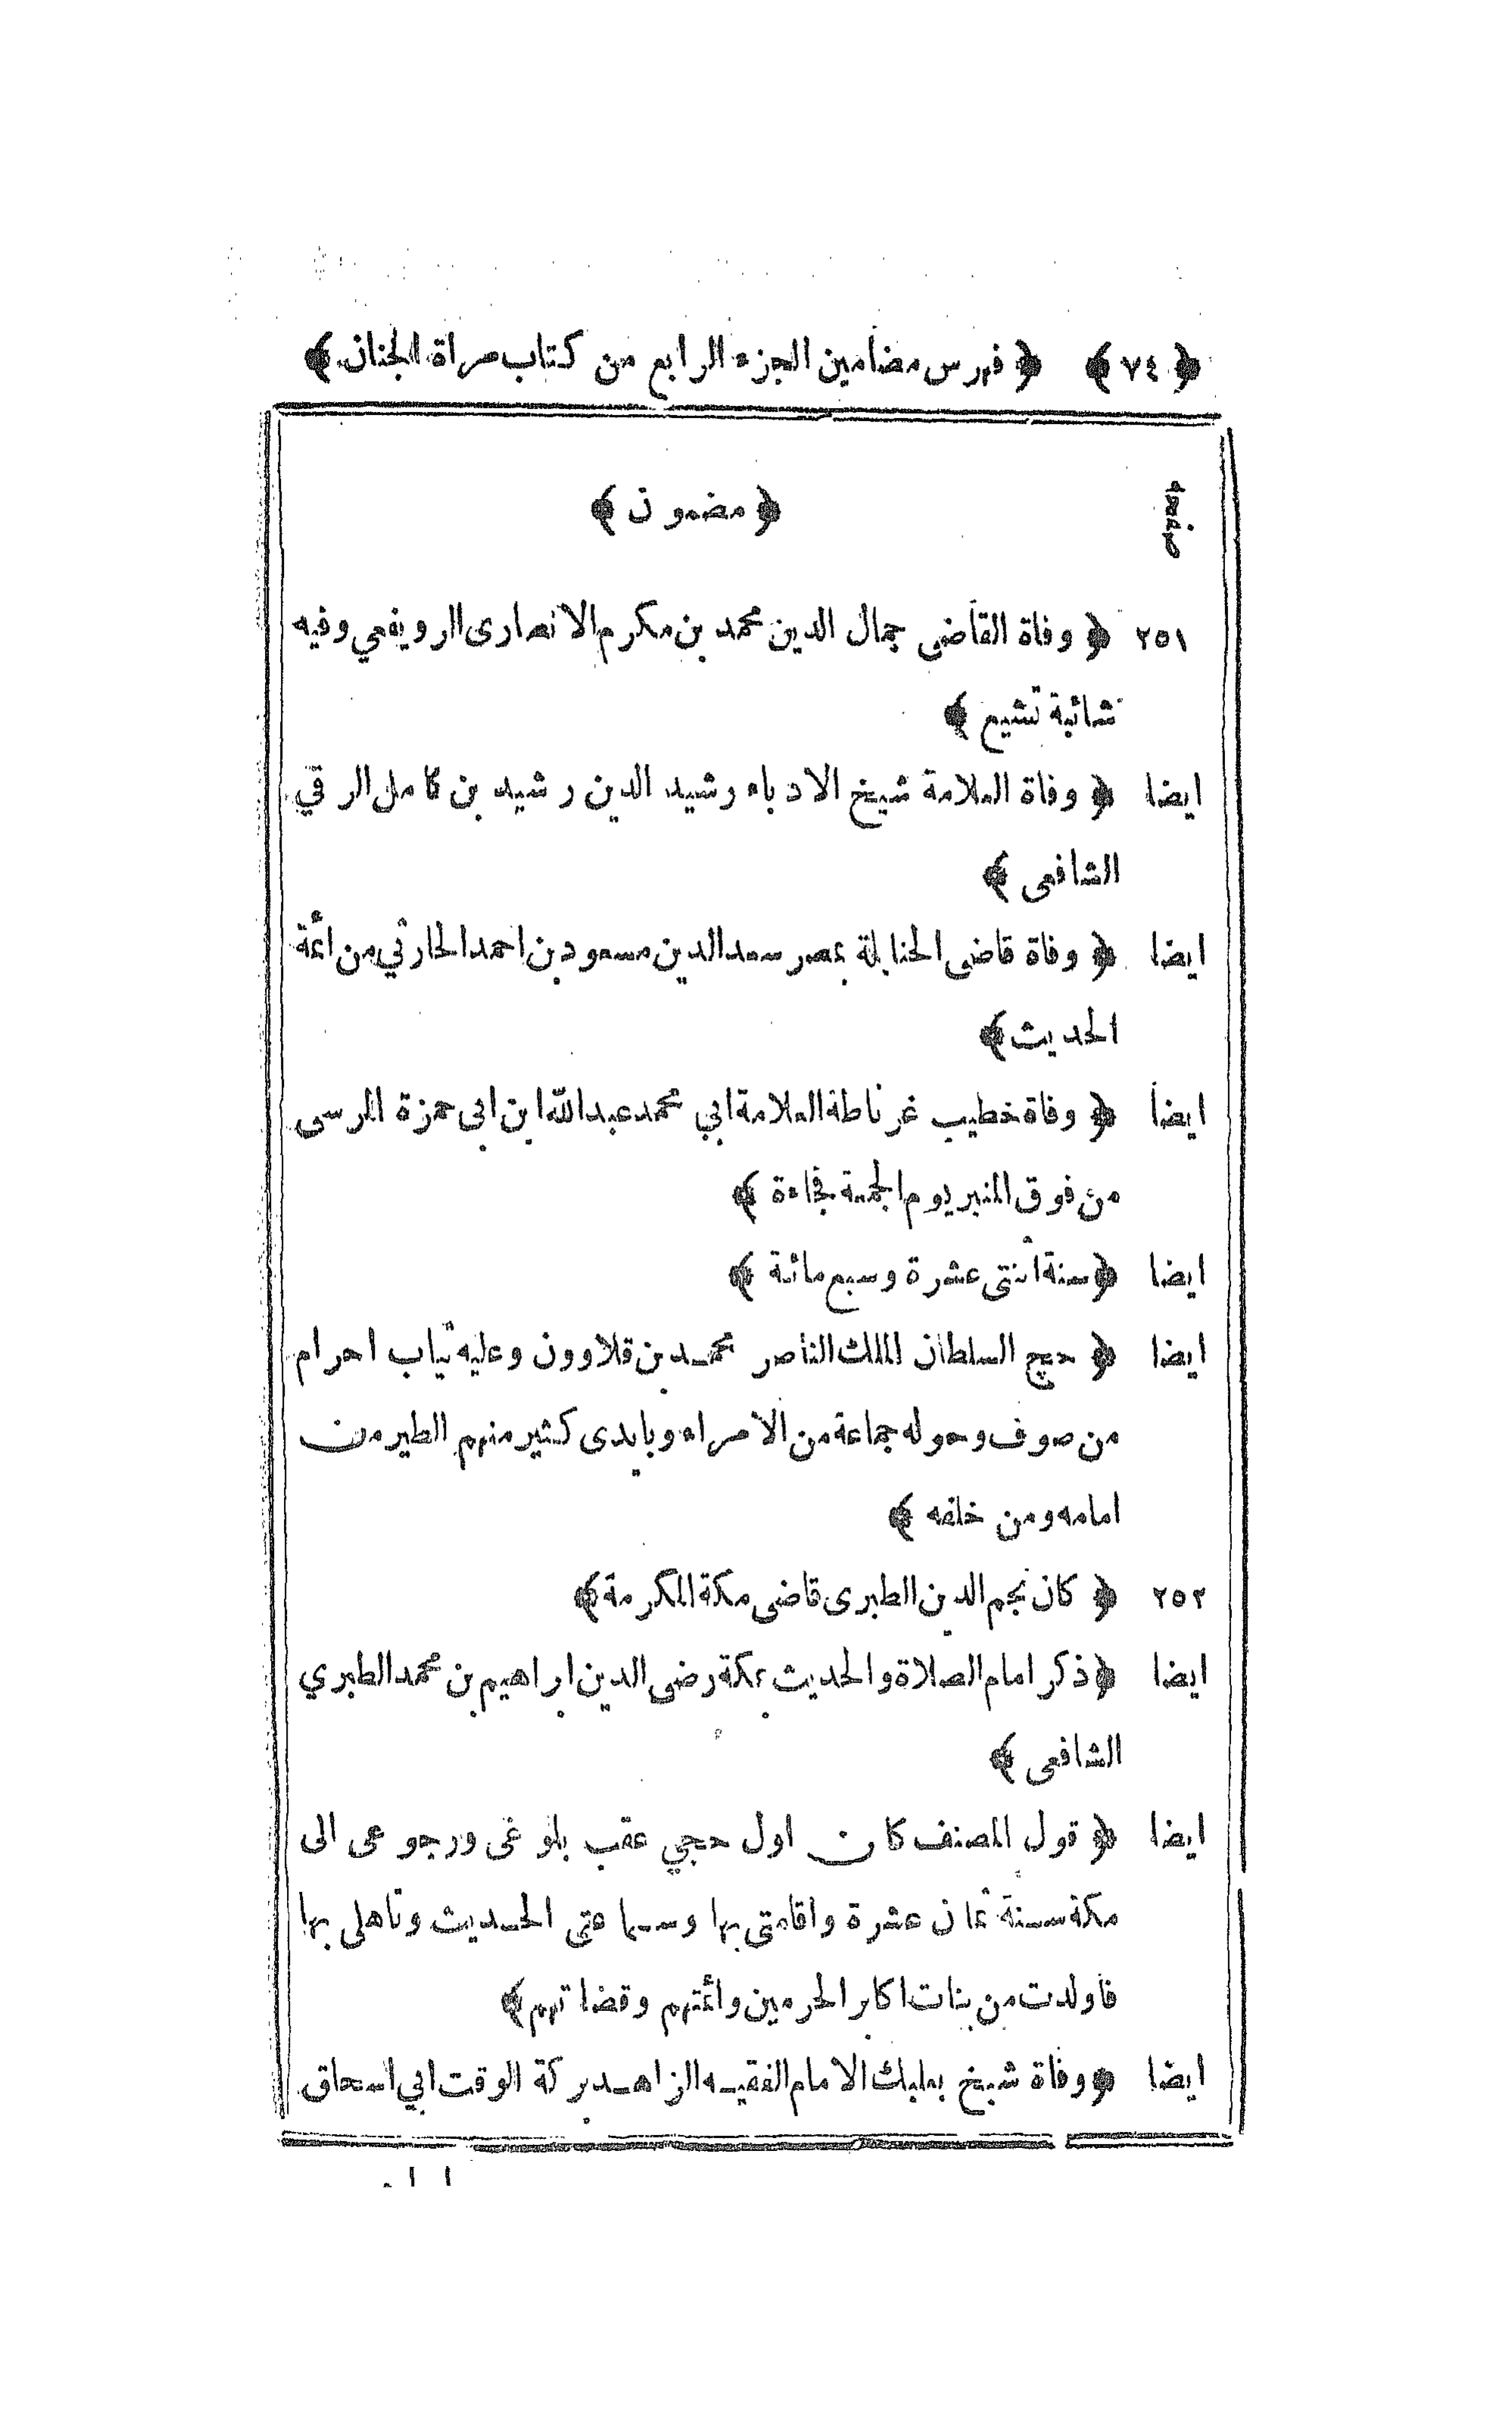 ﴿ ٧٤ ﴾ ﴿ فهرس مضامين الجزء الرابع من كتاب مرآة الجنان ﴾
صفحه ﴿ مضمون ﴾
٢٥١ ﴿ وفاة القاضى جمال الدين محمد بن مكرم الانصارى الرويفعي وفيه
شائبة تشيع ﴾
ايضا ﴿ وفاة العلامة شيخ الادباء رشيد الدين رشيد بن كامل الرقي
الشافعى ﴾
ايضا ﴿ وفاة قاضى الحنابلة بمصر سعد الدين مسعود بن احمد الحارثي من ائمة
الحديث ﴾
ايضا ﴿ وفاة خطيب غرناطة العلامة ابي محمد عبد الله ابن ابى حمزة المرسى
من فوق المنبر يوم الجمعة فجاءة ﴾
ايضا ﴿ سنة اثنتى عشرة وسبع مائة ﴾
ايضا ﴿ حج السلطان الملك الناصر محمد بن قلاوون وعليه ثياب احرام
من صوف وحوله جماعة من الامراء وبايدى كثير منهم الطير من
امامه ومن خلفه ﴾
٢٥٢ ﴿ كان نجم الدين الطبرى قاضى مكة المكرمة ﴾
ايضا ﴿ ذكر امام الصلاة والحديث بمكة رضى الدين ابراهيم بن محمد الطبري
الشافعى ﴾
ايضا ﴿ قول المصنف كان اول حجي عقب بلوغى ورجوعى الى
مكة سنة ثمان عشرة واقامتى بها وسماعتى الحديث وتاهلى بها
فاولدت من بنات اكابر الحرمين وائمتهم وقضاتهم ﴾
ايضا ﴿ وفاة شيخ بعلبك الامام الفقيه الزاهد بركة الوقت ابي اسحاق